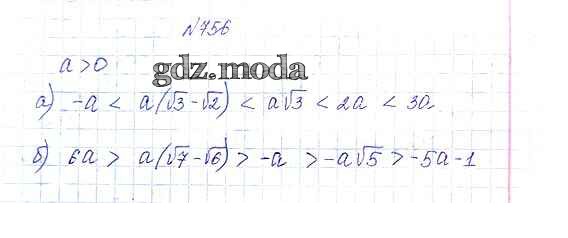 №756
a > 0
gdz.moda
а) -a < a(√3 - √2) < a√3 < 2a < 3a
б) 6a > a(√7 - √6) > -a > -a√5 > -5a - 1